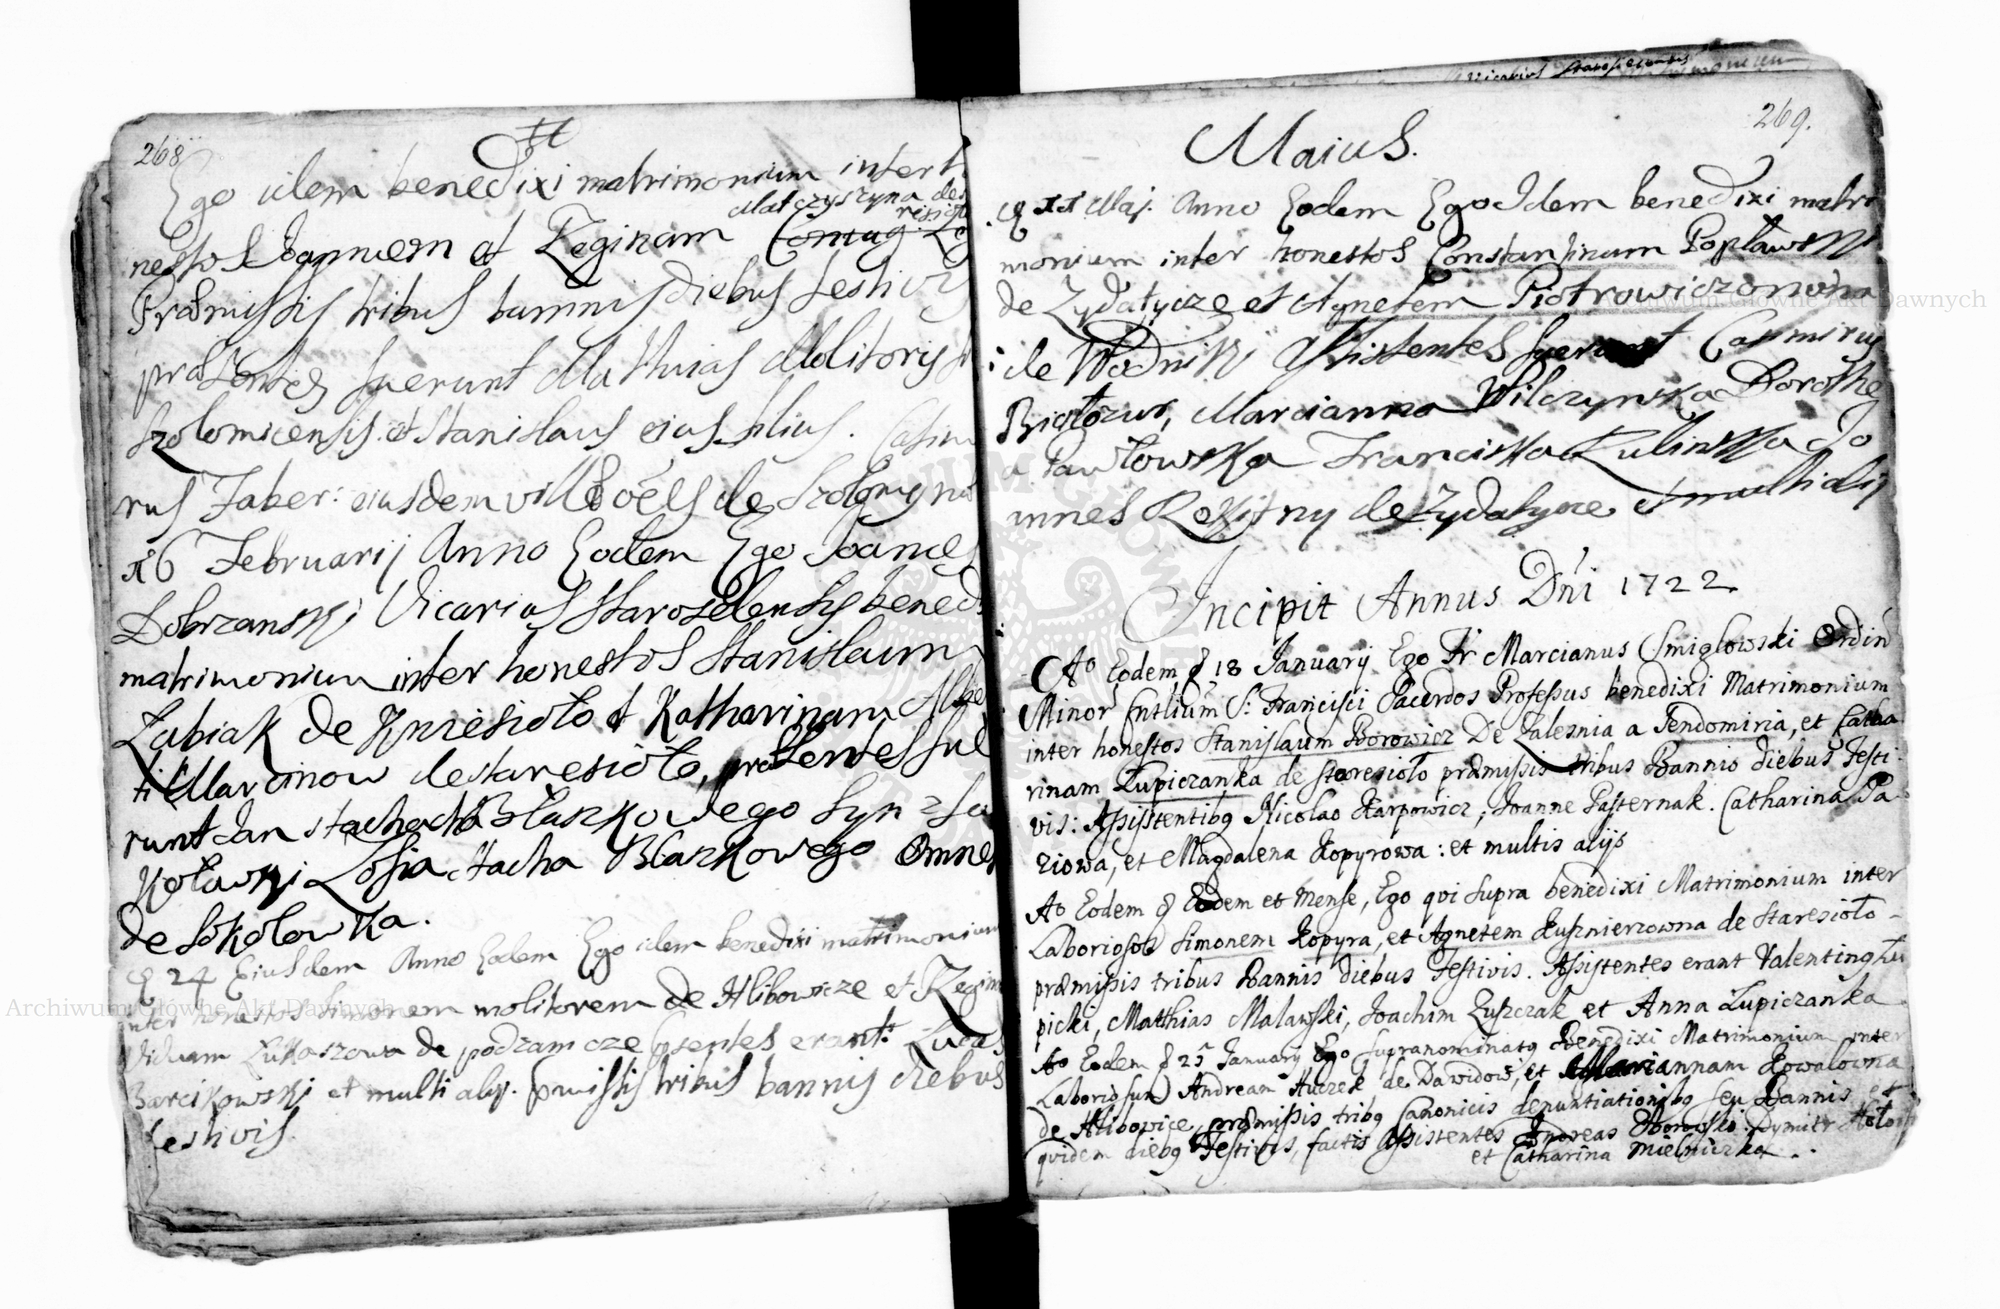 268
Ego idem benedixi matrimonium inter h
Malczyszyna de s
resioł
nestos Joannem et Reginam
Præmissis tribus bannis diebus festivis
præsentes fuerunt Matthias Molitoris
Szołomicensis et Stanislaus eius filius. Casim
rus Faber: eiusdem villæ
16 Februarij Anno Eodem Ego Joannes
Dobrzanski Vicarius Staroselensis bened
matrimonium inter honestos Stanislaum
Łabiak de Knïesioło et Katharinam Albe
ti Marcinow de staresioło, præsentes fue
runt Jan Błaszkowego syn
Zofia Stacha Błaszkowego Omnes
de Sokołowka.
24 Eiusdem Anno Eodem Ego idem benedixi matrimonium
inter honestos Simonem molitorem de Hlibowicze et Regin
Viduam Łukaszowa de podzamcze erant Lucas
Barcikowski et multi alij. tribus bannis diebus
festivis.
Maius. 269.
Maj. Anno Eodem Ego Idem benedixi matri
monium inter honestos Constantinum Popławski
de Zydatycze et Agnetem Piotrowiczowna
de Wodniki Assistentes fuerunt Casimirus
Marcianna Wilczynska Dorothe
a Pawłowska Francisska Kulinska Jo
annes Rokitny de Zydatycze et multi alij
Incipit Annus Dñi 1722
Aº Eodem 18 January Ego Fr Marcianus Smigłowski Ordin
Minor Cntlium S. Francisci Sacerdos Professus benedixi Matrimonium
inter honestos Stanislaum Borowicz De Zalesnia a Sendomiria, et Catha
rinam Łupiczanka de Staresioło præmissis tribus Bannis diebus Festi
vis: Assistentibq Nicolao Karpowicz, Joanne Pasternak. Catharina Ja
ziowa, et Magdalena Kopyrowa: et multis alijs
Aº Eodem Eodem et mense, Ego qvi supra benedixi Matrimonium inter
Laboriosos Simonem Kopyra, et Agnetem Kusznierzowna de Staresioło
præmissis tribus Bannis diebus Festivis. Assistentes erant Valentinq Łu
picki, Matthias Malawski, Joachim Łuszczak et Anna Łupiczanka
Aº Eodem 25 January Ego supranominatq Benedixi Matrimonium inter
Laboriosum Andream Huczek de Dawidow, et Mariannam Kowalowna
de Hlibowice, præmissis tribq Canonicis denuntiationibq seu Bannis et
qvidem diebq Festivis, factis Assistentes Andreas Oborowski Dymitr
et Catharina Mielniczka.
Archiwum Główne Akt Dawnych
Archiwum Główne Akt Dawnych